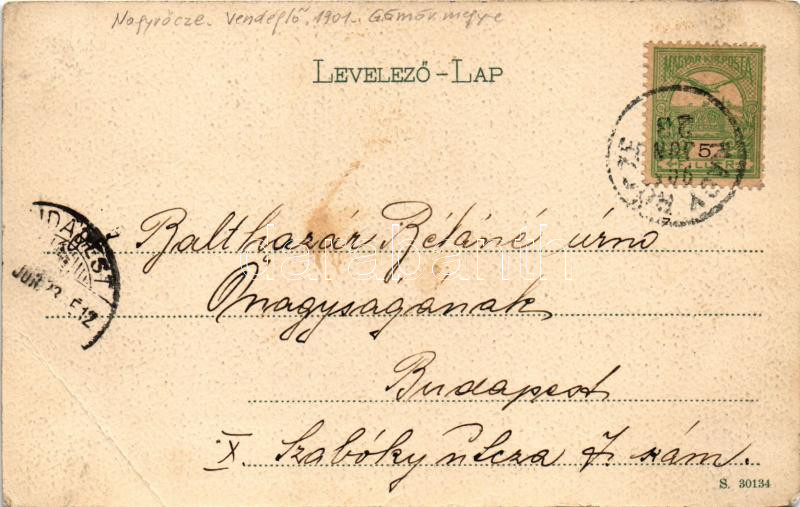 Nagyrőcze. Vendéglő. 1901. Gömör megye
LEVELEZŐ-LAP
MAGYAR KIR. POSTA
5
BUDAPEST
Balthazár Béláné úrnő
Őnagyságának
Budapest
X. Szabóky utcza 7. szám.
darabanth
S. 30134